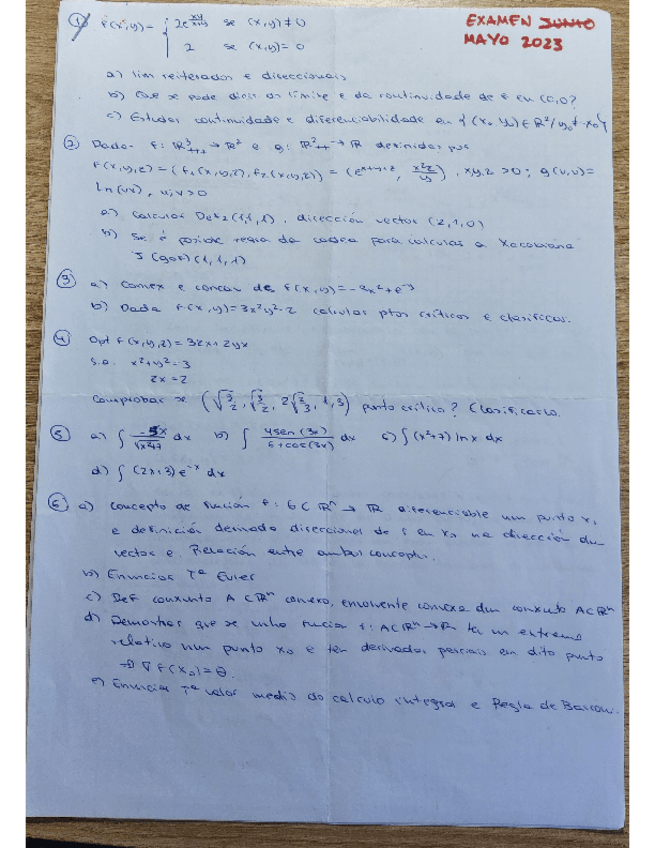 EXAMEN JUNIO
MAYO 2023
① f(x,y) = { 2e^(xy/(x+y)) se (x,y) ≠ 0
2 se (x,y) = 0
a) lim reiterados e direccionais
b) Que se pode dicir do límite e da continuidade de f en (0,0)?
c) Estudar continuidade e diferenciabilidade en {(x₀, y₀) ∈ ℝ² / y₀ ≠ -x₀}
② Dada f: ℝ³₊₊ → ℝ² e g: ℝ²₊₊ → ℝ definidas por
f(x,y,z) = (f₁(x,y,z), f₂(x,y,z)) = (e^(x+y+z), x²z/y), x,y,z > 0; g(u,v) =
ln(uv), u,v > 0
a) Calcular Def₂(1,1,1), dirección vector (2,1,0)
b) Se é posible regra da cadea para calcular a Xacobiana
J (g∘f) (1,1,1)
③ a) Convex e concav de f(x,y) = -3x² + e^-3
b) Dada f(x,y) = 3x²y² - 2 calcular ptos críticos e clasificar.
④ Opt f(x,y,z) = 3zx + 2yx
s.a. x² + y² = 3
zx = 2
Comprobar se (√3/2, √3/2, 2√2/3, 1, 3) punto crítico? Clasificarlo.
⑤ a) ∫ -5x/√x²+7 dx b) ∫ 4sen(3x)/5+cos(3x) dx c) ∫ (x²+7) ln x dx
d) ∫ (2x+3) e^-x dx
⑥ a) Concepto de función f: G ⊂ ℝⁿ → ℝ diferenciable nun punto x₀
e definición derivada direccional de f en x₀ na dirección dun
vector e. Relación entre ambos concepts.
b) Enunciar Tª Euler
c) Def conxunto A ⊂ ℝⁿ convexo, envolvente convexa dun conxunto A ⊂ ℝⁿ
d) Demostrar que se unha función f: A ⊂ ℝⁿ → ℝ ten un extremo
relativo nun punto x₀ e ten derivadas parciais en dito punto
⇒ ∇f(x₀) = θ.
e) Enunciar Tª valor medio do calculo integral e Regla de Barrow.